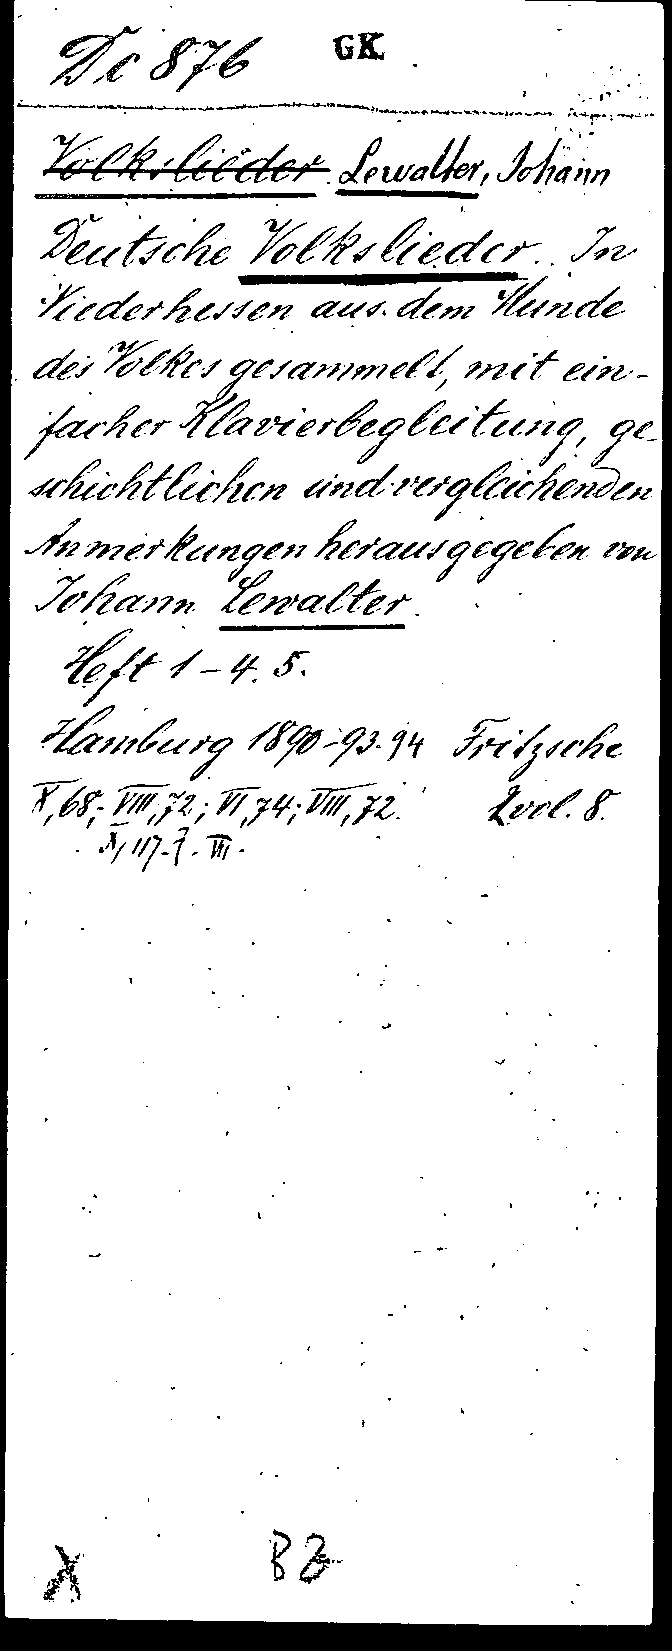 Dc 876 GK
Volkslieder. Lewalter, Johann
Deutsche Volkslieder. In
Niederhessen aus dem Munde
des Volkes gesammelt, mit ein-
facher Klavierbegleitung, ge-
schichtlichen und vergleichenden
Anmerkungen herausgegeben von
Johann Lewalter.
Heft 1-4. 5.
Hamburg 1890-93. 94 Fritzsche
X, 68; VIII, 72; VI, 74; VIII, 72. 2 vol. 8.
X, 117.
X